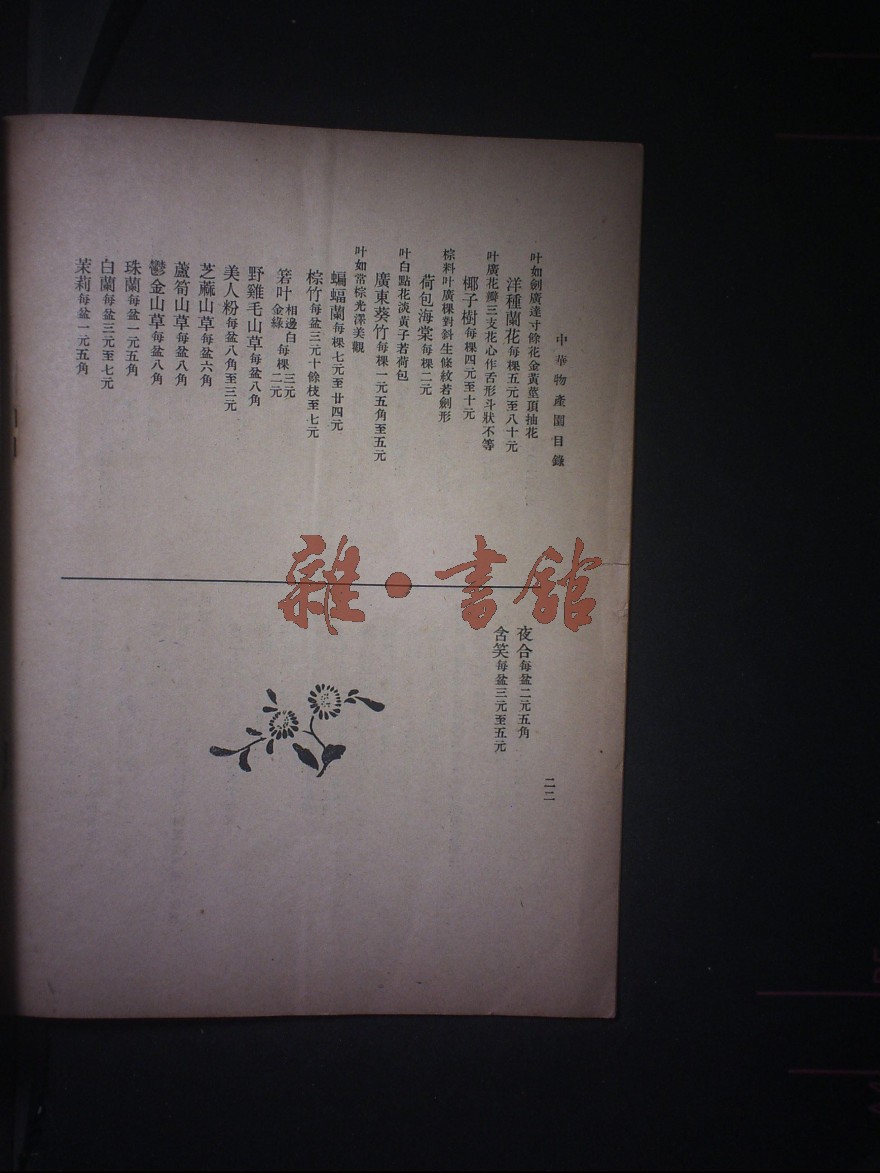 中華物產園目錄
叶如劍廣達寸餘花金黃莖頂抽花
洋種蘭花每棵五元至八十元
叶廣花瓣三支花心作舌形斗狀不等
椰子樹每棵四元至十元
棕料叶廣棵對斜生條紋若劍形
荷包海棠每棵二元
叶白點花淡黃子若荷包
廣東葵竹每棵一元五角至五元
叶如常棕光澤美觀
蝙蝠蘭每棵七元至廿四元
棕竹每盆三元十餘枝至七元
箬叶相邊白每棵三元
金綠二元
野雞毛山草每盆八角
美人粉每盆八角至三元
芝蔴山草每盆六角
蘆筍山草每盆八角
鬱金山草每盆八角
珠蘭每盆一元五角
白蘭每盆三元至七元
茉莉每盆一元五角
夜合每盆二元五角
含笑每盆三元至五元
二二
雜·書館